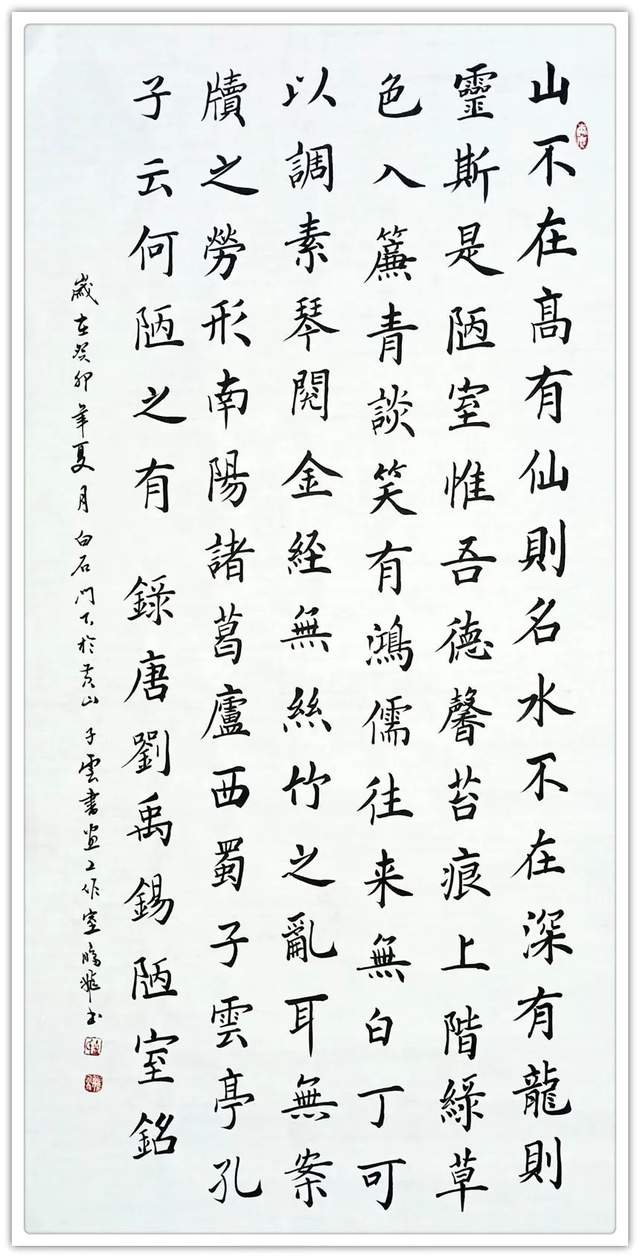 山不在高有仙則名水不在深有龍則
靈斯是陋室惟吾德馨苔痕上階綠草
色入簾青談笑有鴻儒往来無白丁可
以調素琴閱金經無絲竹之亂耳無案
牘之勞形南陽諸葛廬西蜀子雲亭孔
子云何陋之有 錄唐劉禹錫陋室銘
歲在癸卯年夏月白石门下於黄山子雲書画工作室 书